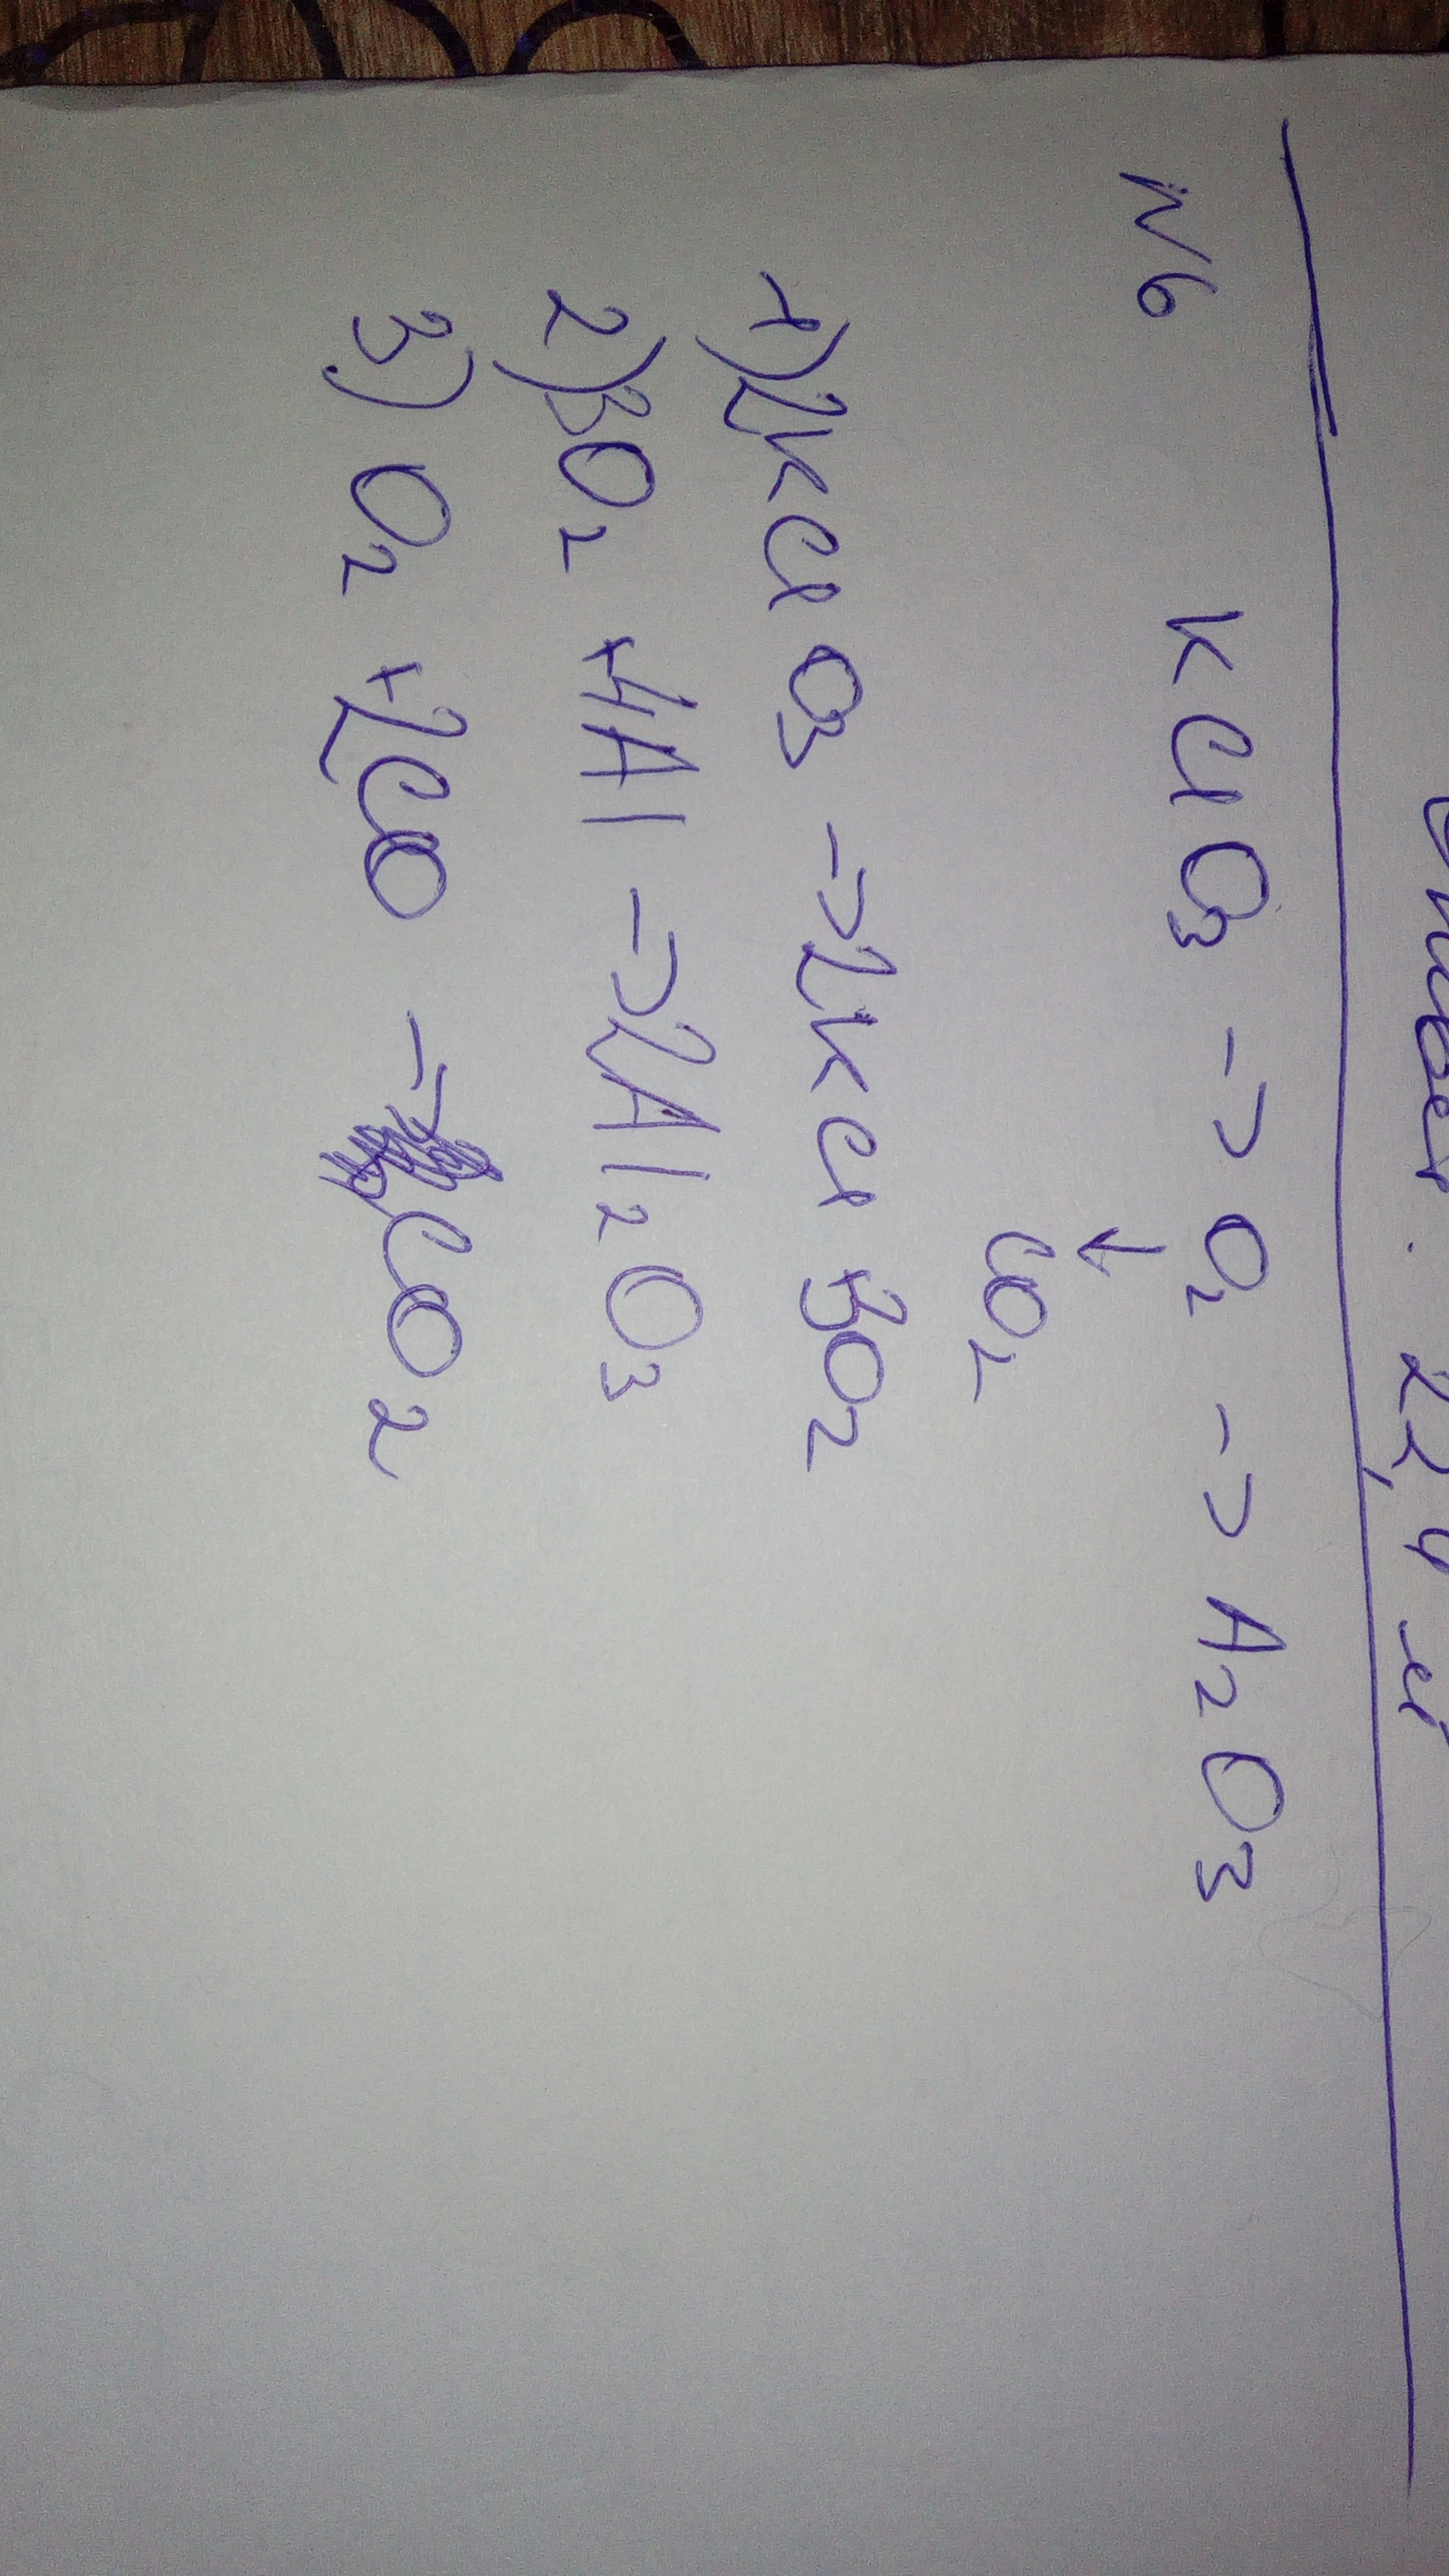 22,4 л
N6 KClO3 -> O2 -> A2O3
↓
CO2
1) 2KClO3 -> 2KCl + 3O2
2) 3O2 + 4Al -> 2Al2O3
3) O2 + 2CO -> CO2